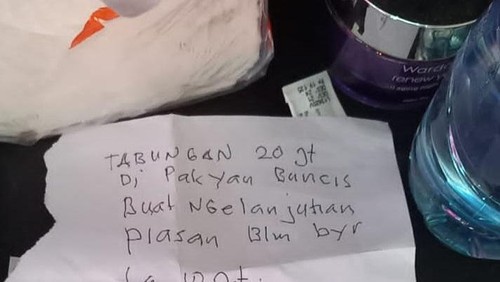 Wardah
renew you
TABUNGAN 20 jt
Di Pak Yan Buncis
Buat NGelanjutian
Plasan Blm byr